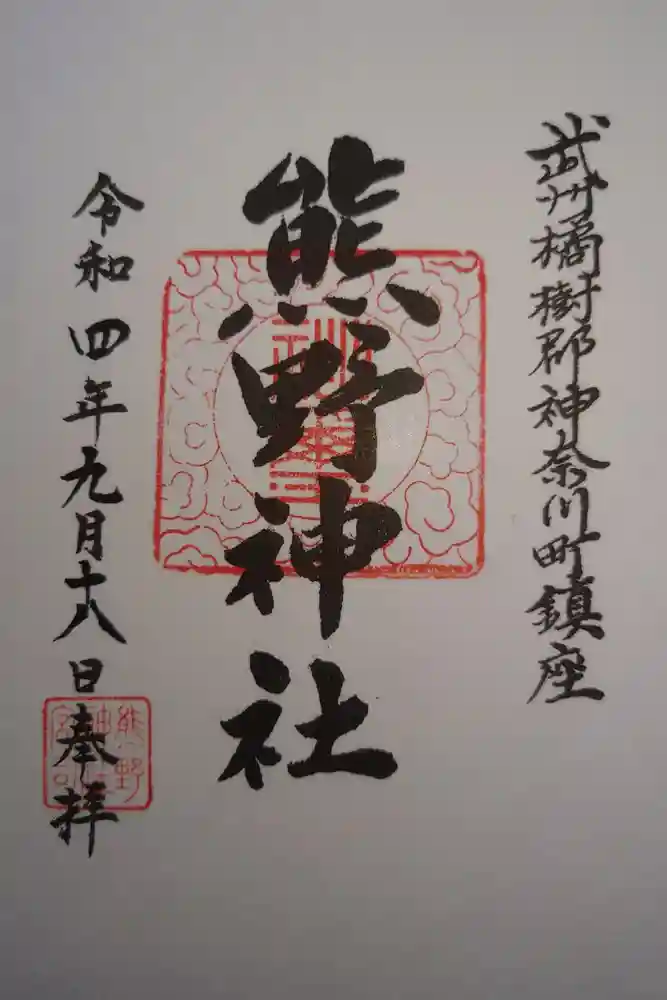 武州橘樹郡神奈川町鎮座
熊野神社
令和四年九月十八日奉拝
熊野神社宮司